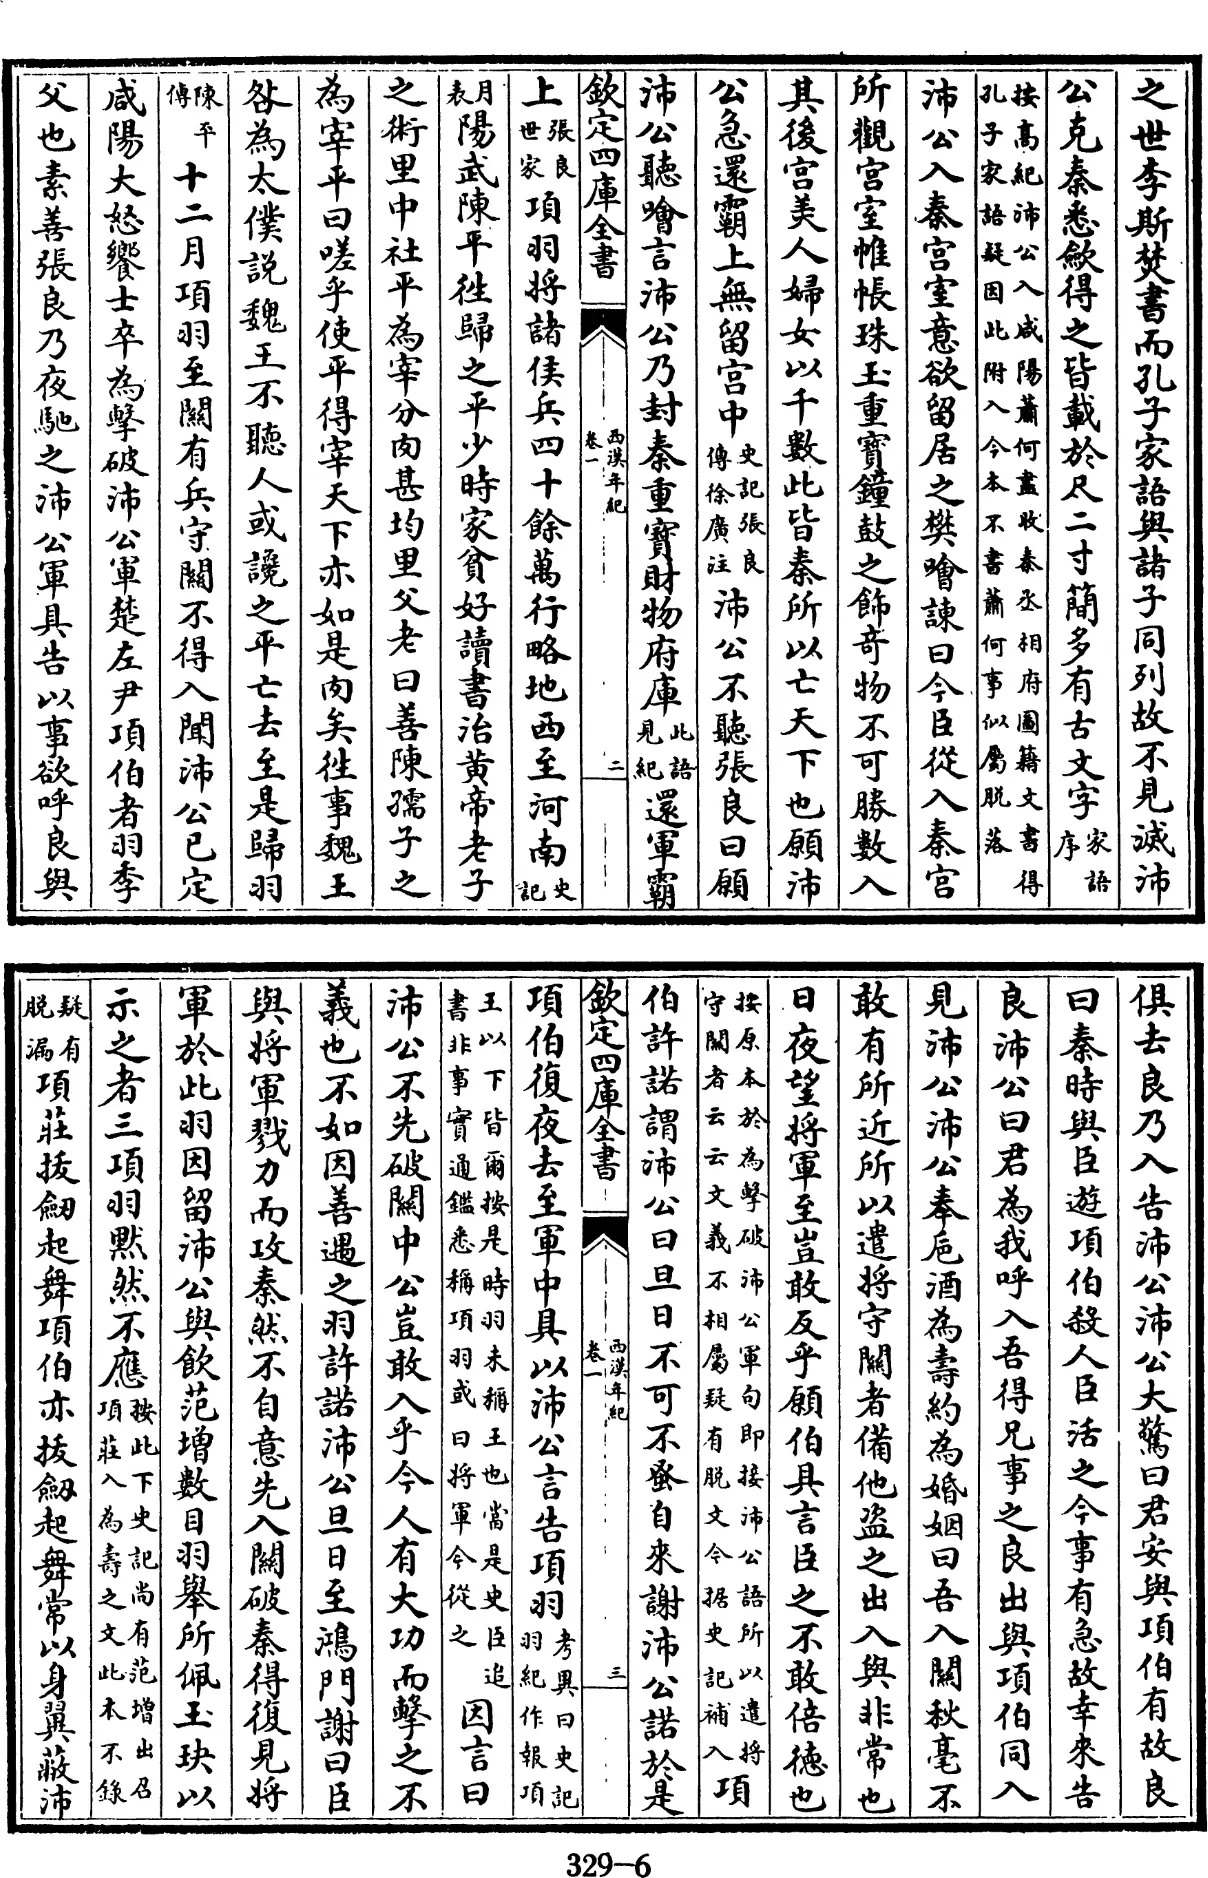 之世李斯焚書而孔子家語與諸子同列故不見滅沛
公克秦悉歛得之皆載於尺二寸簡多有古文字家語序
按高紀沛公入咸陽蕭何盡收秦丞相府圖籍文書得
孔子家語疑因此附入今本不書蕭何事似屬脱落
沛公入秦宮室意欲留居之樊噲諫曰今臣從入秦宮
所觀宮室帷帳珠玉重寶鐘鼓之飾奇物不可勝數入
其後宮美人婦女以千數此皆秦所以亡天下也願沛
公急還霸上無留宮中史記張良傳徐廣注沛公不聽張良曰願
沛公聽噲言沛公乃封秦重寶財物府庫此語見紀還軍霸
欽定四庫全書 西漢年紀 卷一 二
上張良世家項羽將諸侯兵四十餘萬行略地西至河南史記
月表陽武陳平往歸之平少時家貧好讀書治黄帝老子
之術里中社平為宰分肉甚均里父老曰善陳孺子之
為宰平曰嗟乎使平得宰天下亦如是肉矣往事魏王
咎為太僕説魏王不聽人或讒之平亡去至是歸羽
陳平傳十二月項羽至關有兵守關不得入聞沛公已定
咸陽大怒饗士卒為擊破沛公軍楚左尹項伯者羽季
父也素善張良乃夜馳之沛公軍具告以事欲呼良與
俱去良乃入告沛公沛公大驚曰君安與項伯有故良
曰秦時與臣遊項伯殺人臣活之今事有急故幸來告
良沛公曰君為我呼入吾得兄事之良出與項伯同入
見沛公沛公奉卮酒為壽約為婚姻曰吾入關秋毫不
敢有所近所以遣將守關者備他盗之出入與非常也
日夜望將軍至豈敢反乎願伯具言臣之不敢倍德也
按原本於為擊破沛公軍句即接沛公語所以遣將守關者云云文義不相屬疑有脱文今据史記補入項
伯許諾謂沛公曰旦日不可不蚤自來謝沛公諾於是
欽定四庫全書 西漢年紀 卷一 三
項伯復夜去至軍中具以沛公言告項羽考異曰史記羽紀作報項
王以下皆爾按是時羽未稱王也當是史臣追書非事實通鑑悉稱項羽或曰將軍今從之因言曰
沛公不先破關中公豈敢入乎今人有大功而擊之不
義也不如因善遇之羽許諾沛公旦日至鴻門謝曰臣
與將軍戮力而攻秦然不自意先入關破秦得復見將
軍於此羽因留沛公與飲范增數目羽舉所佩玉玦以
示之者三項羽黙然不應按此下史記尚有范增出召項莊入為壽之文此本不錄
疑有脱漏項莊拔劔起舞項伯亦拔劔起舞常以身翼蔽沛
329—6